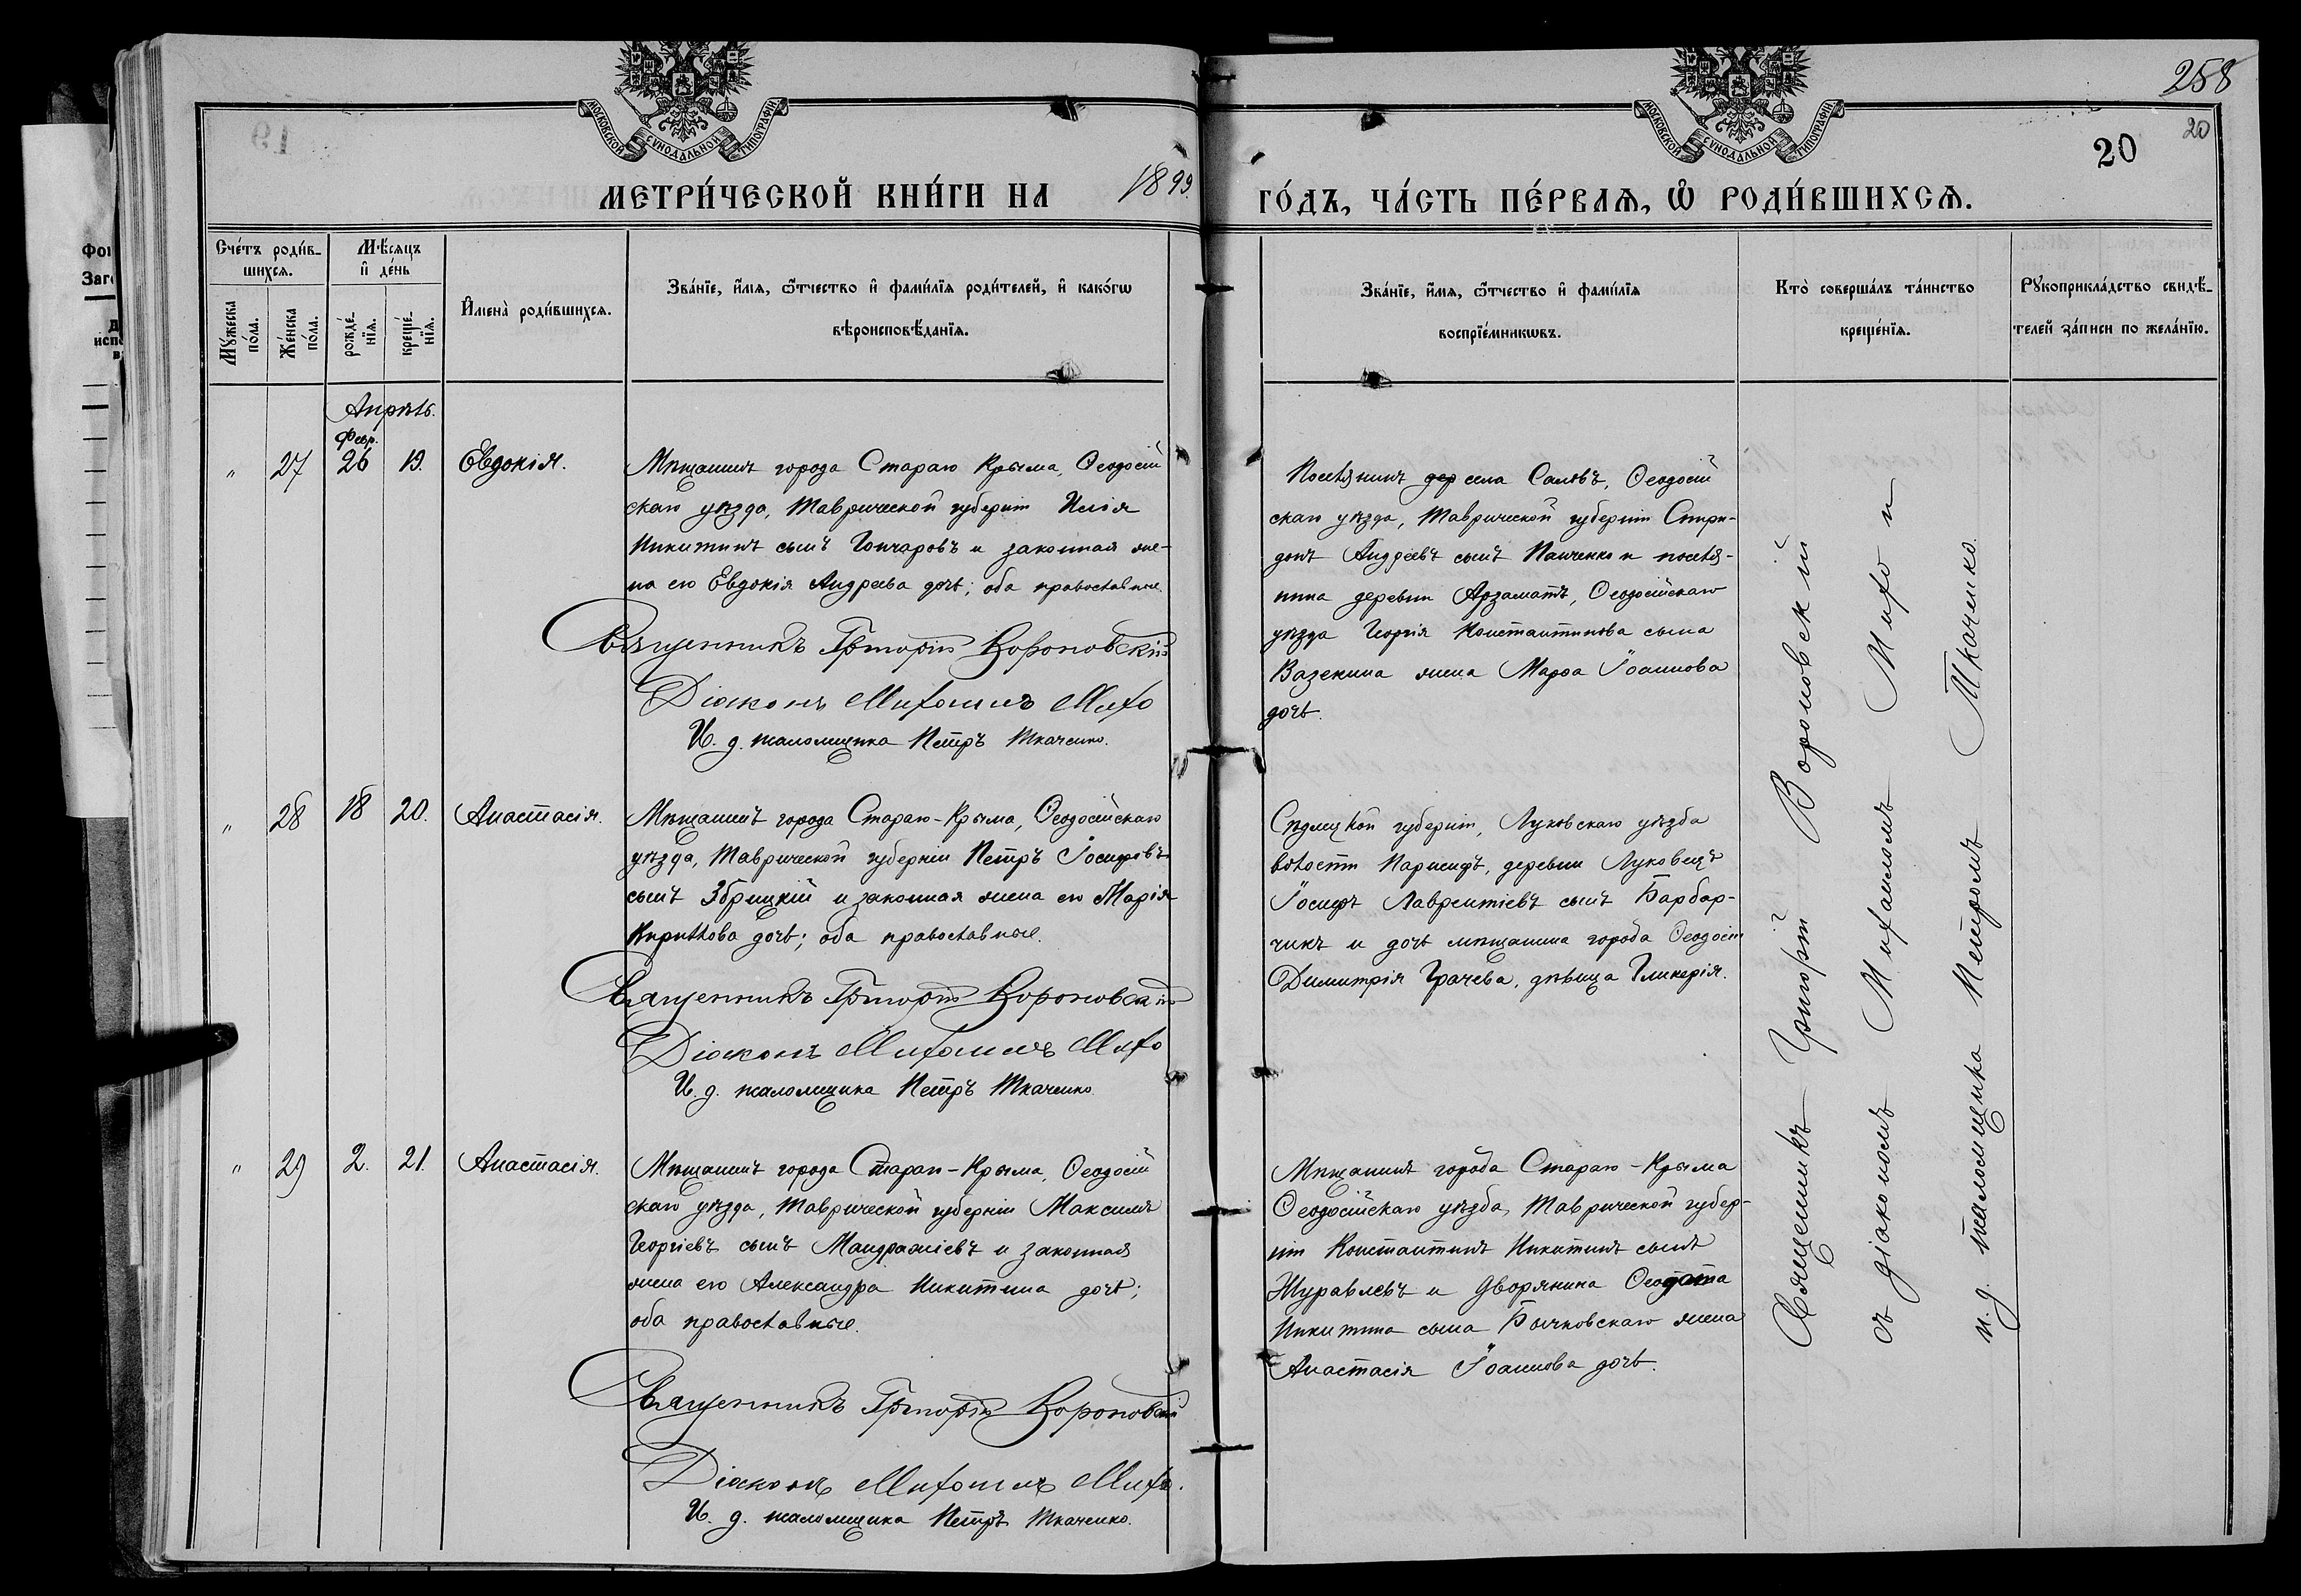 258
20
20
МОСКОВСКОЙ СУНОДАЛЬНОЙ ТИПОГРАФІИ
МОСКОВСКОЙ СУНОДАЛЬНОЙ ТИПОГРАФІИ
МЕТРИ́ЧЕСКОЙ КНИ́ГИ НА 1899. ГО́ДЪ, ЧА́СТЬ ПЕ́РВАѦ, Ѽ РОДИ́ВШИХСѦ.
Сче́тъ роди́в-
шихсѧ.
Мꙋ́жеска
по́ла.
Же́нска
по́ла.
Мѣ́сѧцъ
и҆ де́нь
рожде́-
нїѧ.
креще́-
нїѧ.
И҆мена̀ роди́вшихсѧ.
Зва́нїе, и҆́мѧ, ѻ҆́тчество и҆ фами́лїѧ роди́телей, и҆ како́гѡ
вѣроисповѣ́данїѧ.
Зва́нїе, и҆́мѧ, ѻ҆́тчество и҆ фами́лїѧ
воспрїе́мникѡвъ.
Кто̀ соверша́лъ та́инство
креще́нїѧ.
Рꙋкоприкла́дство свидѣ́-
телей за́писи по жела́нїю.
Апрѣль.
Февр.
" 27 26 19. Евдокія.
Мѣщанинъ города Стараго Крыма, Ѳеодосій
скаго уѣзда, Таврической губерніи Илія
Никитинъ сынъ Гончаровъ и законная же-
на его Евдокія Андреева дочь; оба православные.
Священникъ Григорій Вороновскій
Діаконъ Михаилъ Михо
И. д. псаломщика Петръ Ткаченко.
Поселянинъ дер села Салы, Ѳеодосій
скаго уѣзда, Таврической губерніи Спири-
донъ Андреевъ сынъ Панченко и поселя-
нина деревни Арзаматъ, Ѳеодосійскаго
уѣзда Георгія Константинова сына
Вазекина жена Марѳа Іоаннова
дочь.
" 28 18 20. Анастасія.
Мѣщанинъ города Стараго-Крыма, Ѳеодосійскаго
уѣзда, Таврической губерніи Петръ Іосифовъ
сынъ Збрицкій и законная жена его Марія
Кириллова дочь; оба православные.
Священникъ Григорій Вороновскій
Діаконъ Михаилъ Михо
И. д. псаломщика Петръ Ткаченко.
Сѣдлецкой губерніи, Луковскаго уѣзда
волости деревни Луковецъ
Іосифъ Лаврентіевъ сынъ Барбар-
чикъ и дочь мѣщанина города Ѳеодосіи
Димитрія Грачева, дѣвица Гликерія.
" 29 2. 21. Анастасія.
Мѣщанинъ города Стараго-Крыма, Ѳеодосій
скаго уѣзда, Таврической губерніи Максимъ
Георгіевъ сынъ Мандражіевъ и законная
жена его Александра Никитина дочь;
оба православные.
Священникъ Григорій Вороновскій
Діаконъ Михаилъ Михо.
И. д. псаломщика Петръ Ткаченко.
Мѣщанинъ города Стараго-Крыма
Ѳеодосійскаго уѣзда, Таврической губер-
ніи Константинъ Никитинъ сынъ
Журавлевъ и дворянина Ѳеодота
Никитина сына Бычковскаго жена
Анастасія Іоаннова дочь.
Священникъ Григорій Вороновскій
съ діакономъ Михаиломъ Михо и
и. д. псаломщика Петромъ Ткаченко.